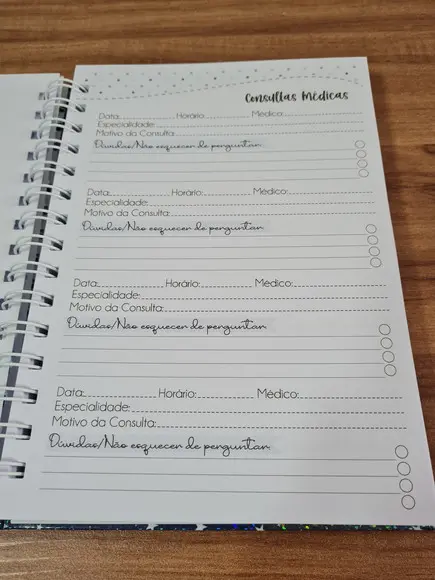 Consultas Médicas
Data: Horário: Médico:
Especialidade:
Motivo da Consulta:
Dúvidas/Não esquecer de perguntar
Data: Horário: Médico:
Especialidade:
Motivo da Consulta:
Dúvidas/Não esquecer de perguntar
Data: Horário: Médico:
Especialidade:
Motivo da Consulta:
Dúvidas/Não esquecer de perguntar
Data: Horário: Médico:
Especialidade:
Motivo da Consulta:
Dúvidas/Não esquecer de perguntar